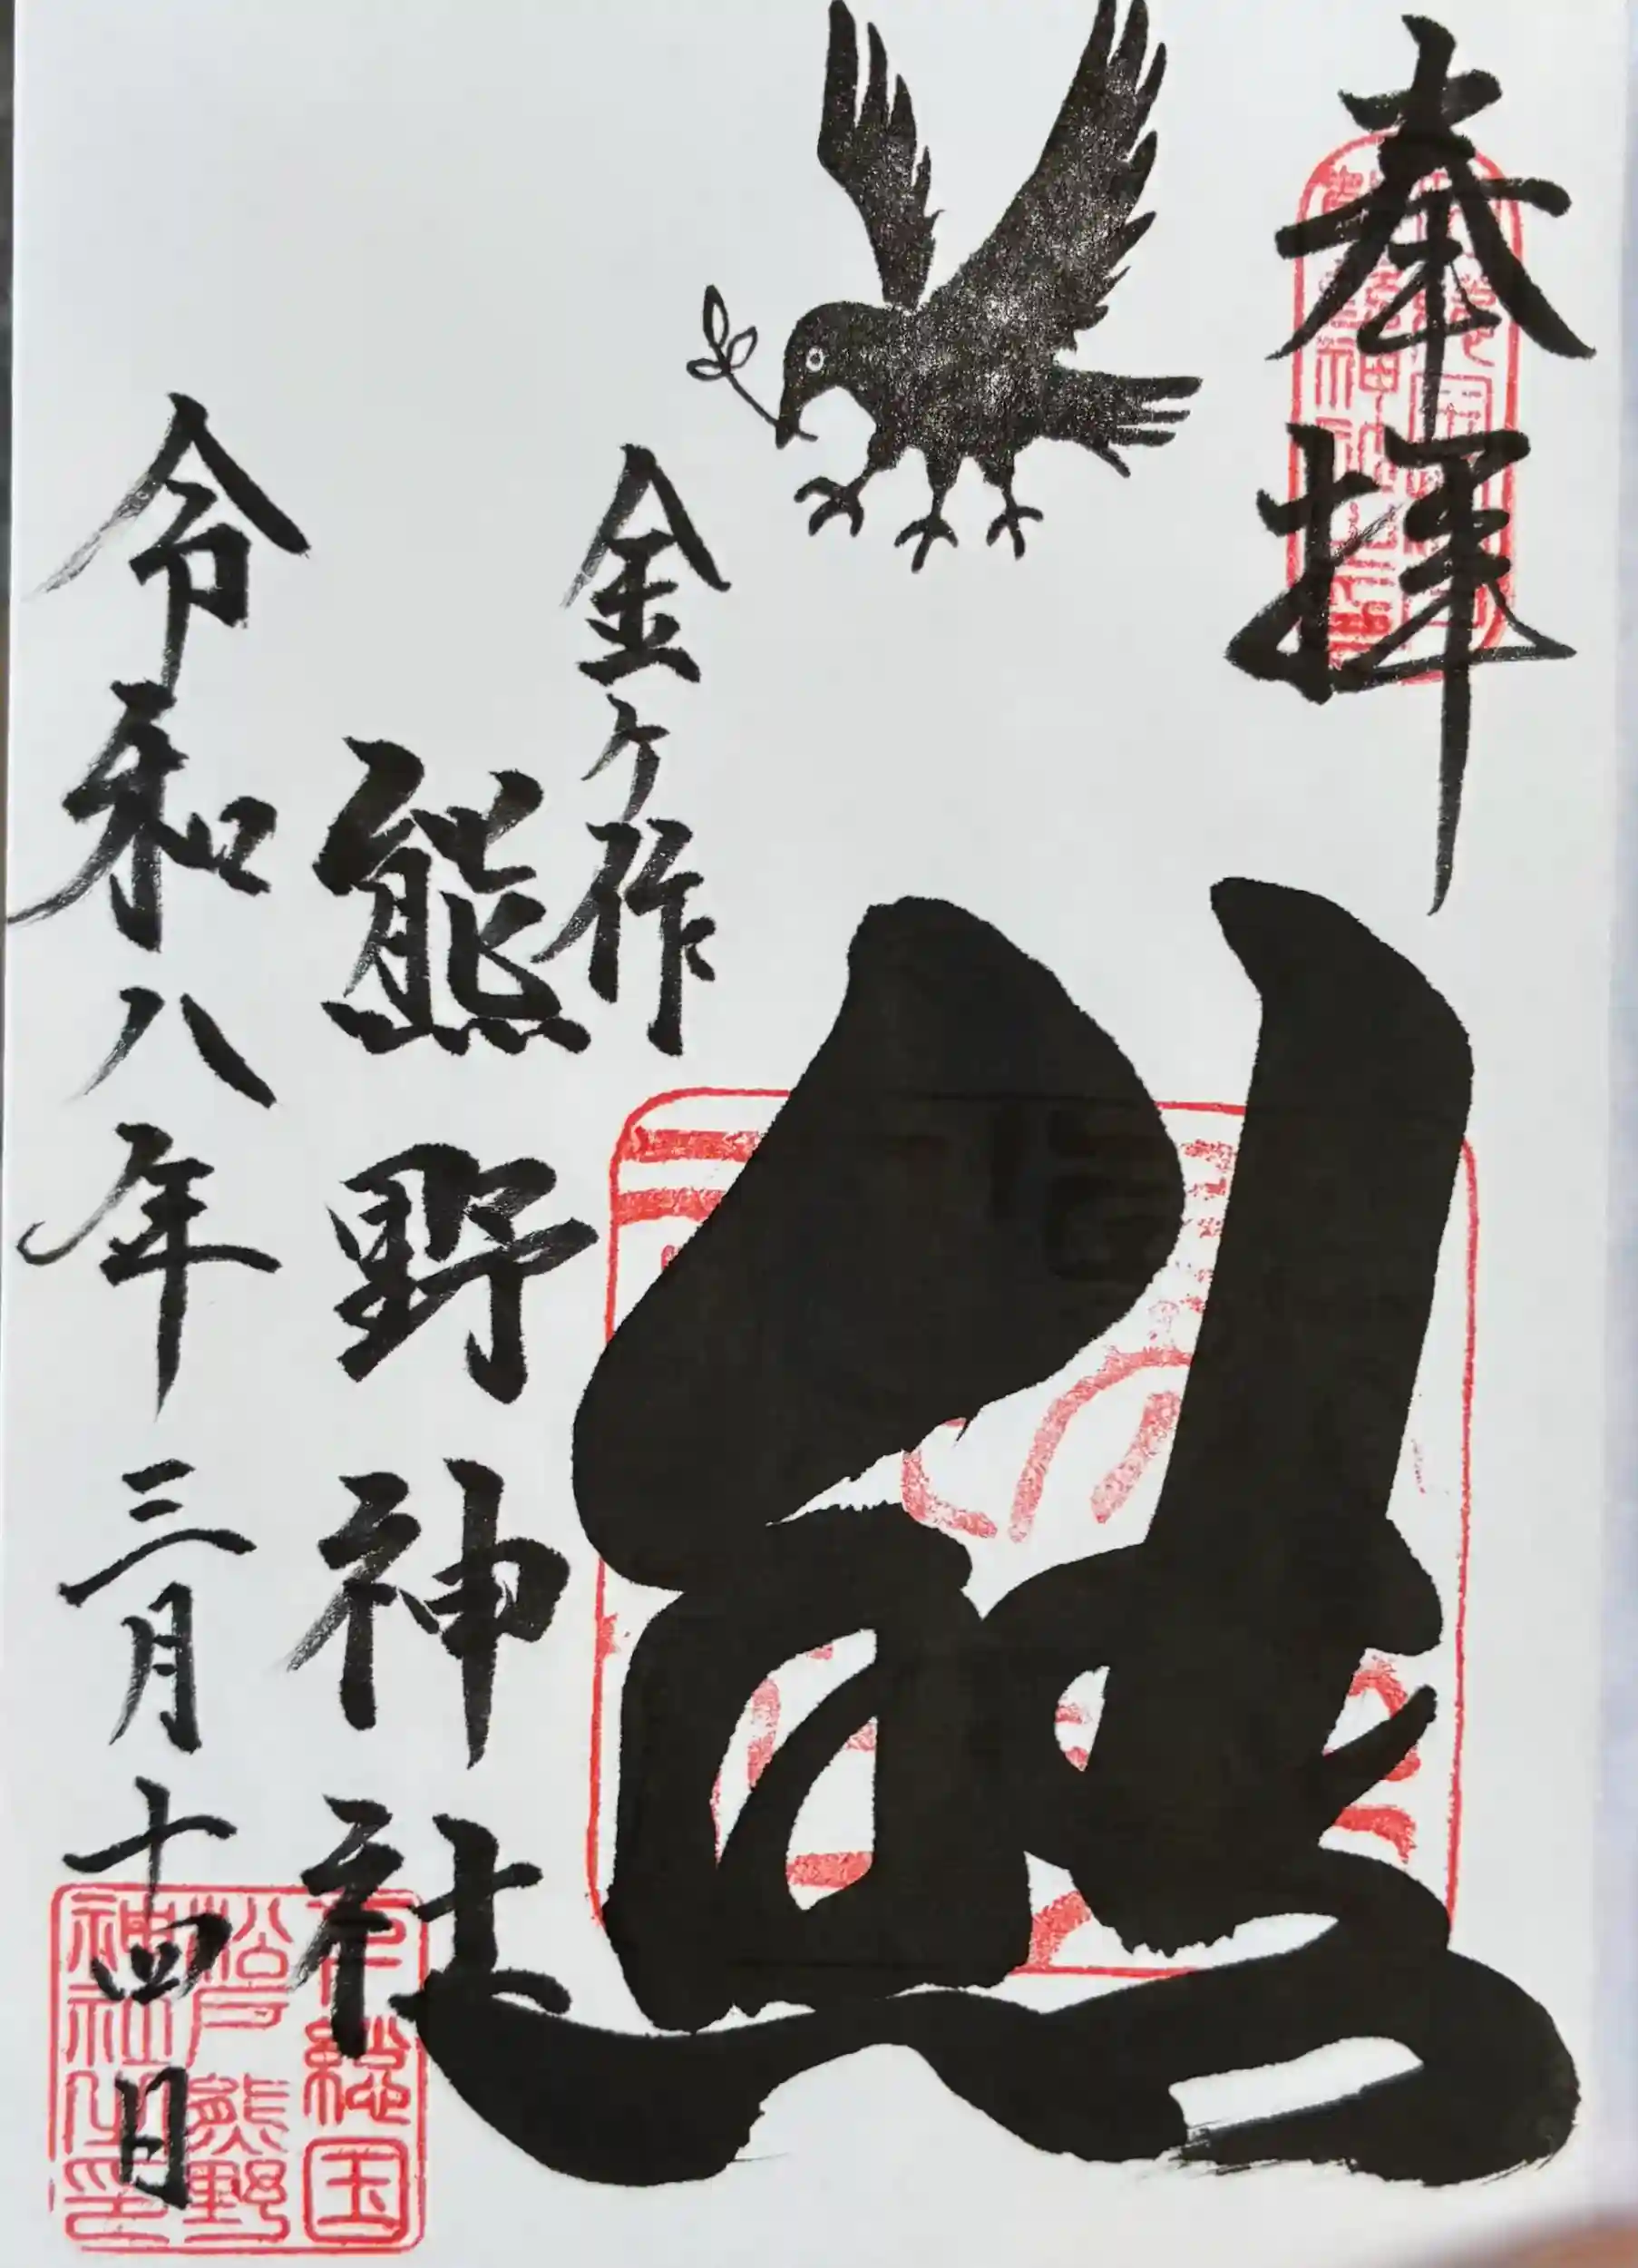 奉拝
熊
金ケ作
熊野神社
令和八年三月十四日
下総国
松戸熊野
神社之印